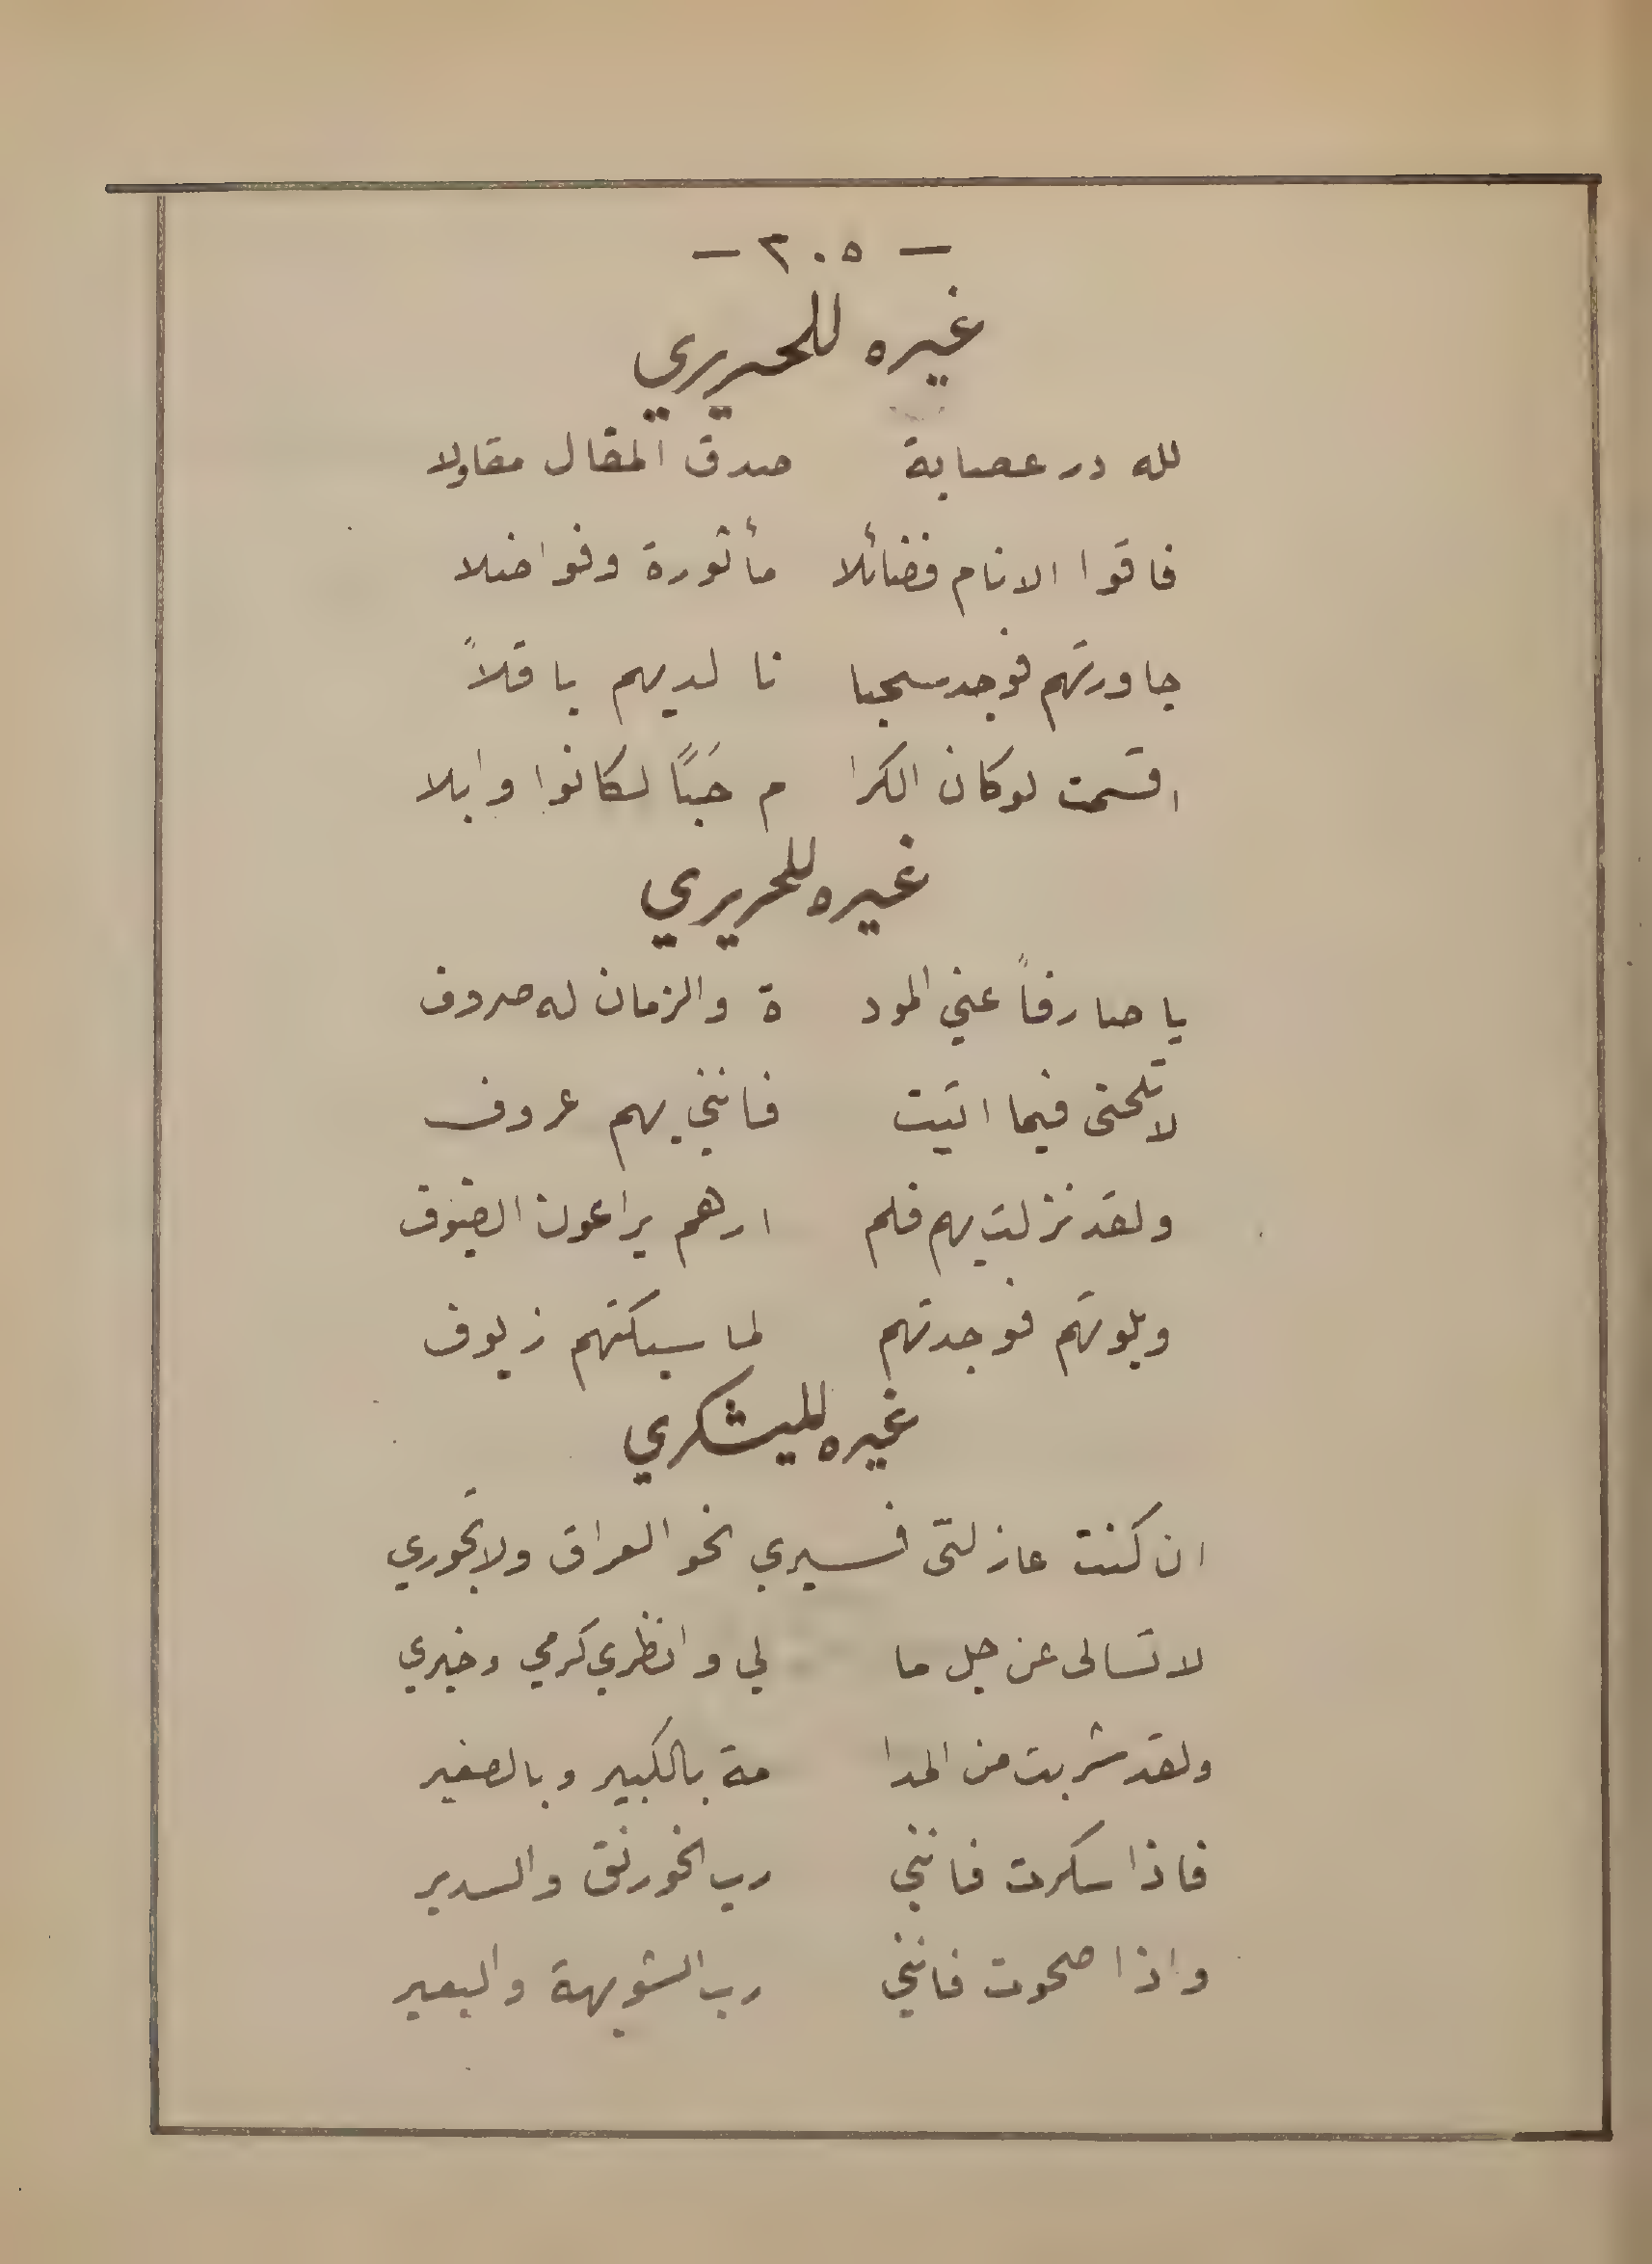 — ٣٠٥ —
غيره للحريري
لله در عصابة صدق المقال مقاولا
فاقوا الانام فضائلا مأثورة وفواضلا
جاورتهم فوجد سحبا نا لديهم باقلاً
اقسمت لوكان الكرا م حَبًا لكانوا وابلا
غيره للحريري
يا صارفاً عني المود ة والزمان له صروف
لا تلحنى فيما اتيت فانني بهم عروف
ولقد نزلت بهم فلم ارهم يراعون الضيوف
وبلوتهم فوجدتهم لما سبكتهم زيوف
غيره لليشكري
ان كنت عازلتى فسيري نحو العراق ولا تحوري
لا تسالى عن جل ما لي وانظري كرمي وخيري
ولقد شربت من المدا مة بالكبير وبالصغير
فاذا سكرت فانني رب الخورنق والسدير
واذا صحوت فانني رب الشويهة والبعير